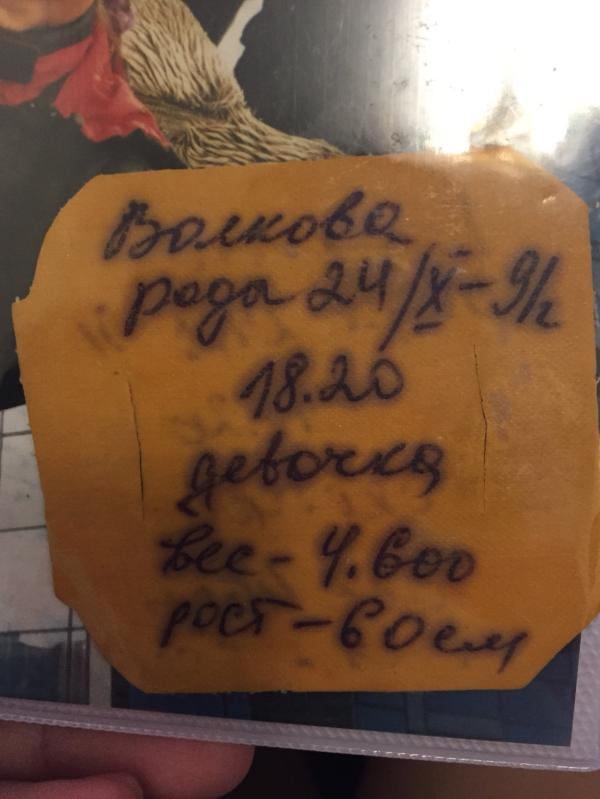 Волкова
роды 24/X-91г
18.20
девочка
вес - 4.600
рост - 60 см